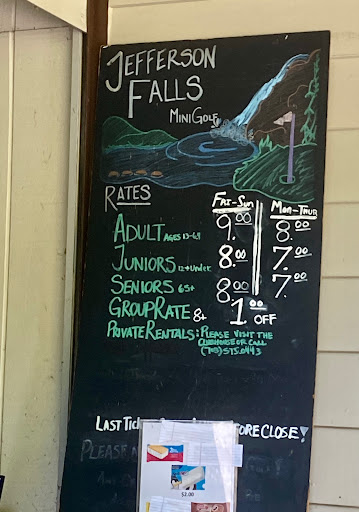 JEFFERSON
FALLS
MINI GOLF
RATES
FRI-SUN MON-THUR
ADULT AGES 13-64 9.00 8.00
JUNIORS 12+UNDER 8.00 7.00
SENIORS 65+ 8.00 7.00
GROUP RATE 8+ 1.00 OFF
PRIVATE RENTALS: PLEASE VISIT THE
CLUBHOUSE OR CALL
LAST FORE CLOSE!
PLEASE
$2.00